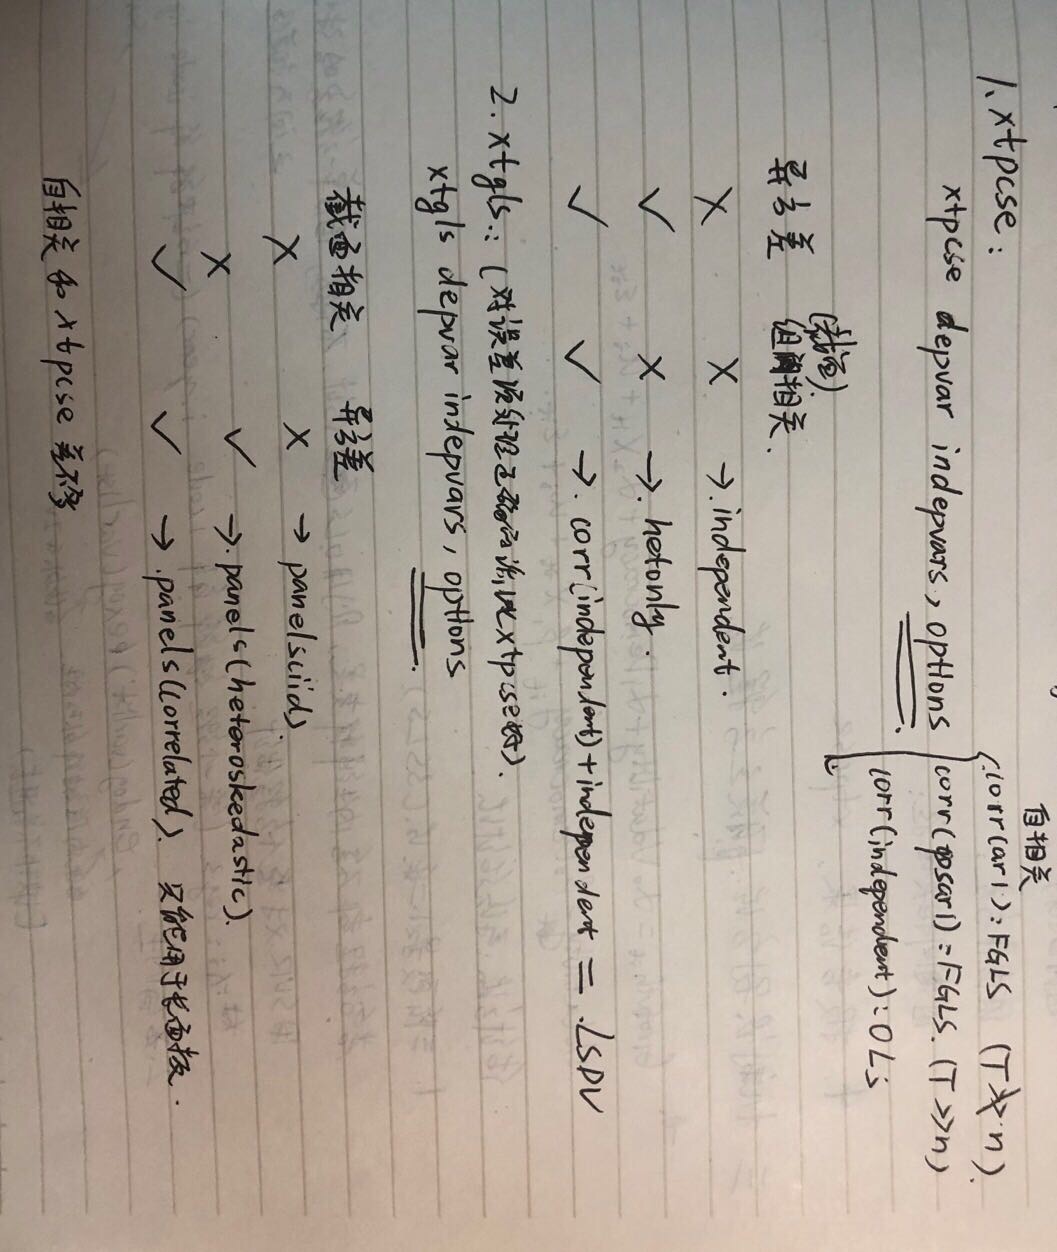 1、xtpcse:
自相关
xtpcse depvar indepvars, options
corr(ar1):FGLS (T≯n)
corr(psar1):FGLS. (T>>n)
corr(independent):OLS
(截面)
异方差 组间相关.
× × →.independent.
✓ × →.hetonly.
✓ ✓ →.corr(independent)+independent = .LSDV
2.xtgls.:(对误差项处理正确的话,比xtpcse好).
xtgls depvar indepvars, options
截面相关 异方差
× × → panels(iid).
× ✓ →.panels(heteroskedastic).
✓ ✓ →.panels(correlated). 只能用于长面板.
自相关和xtpcse差不多